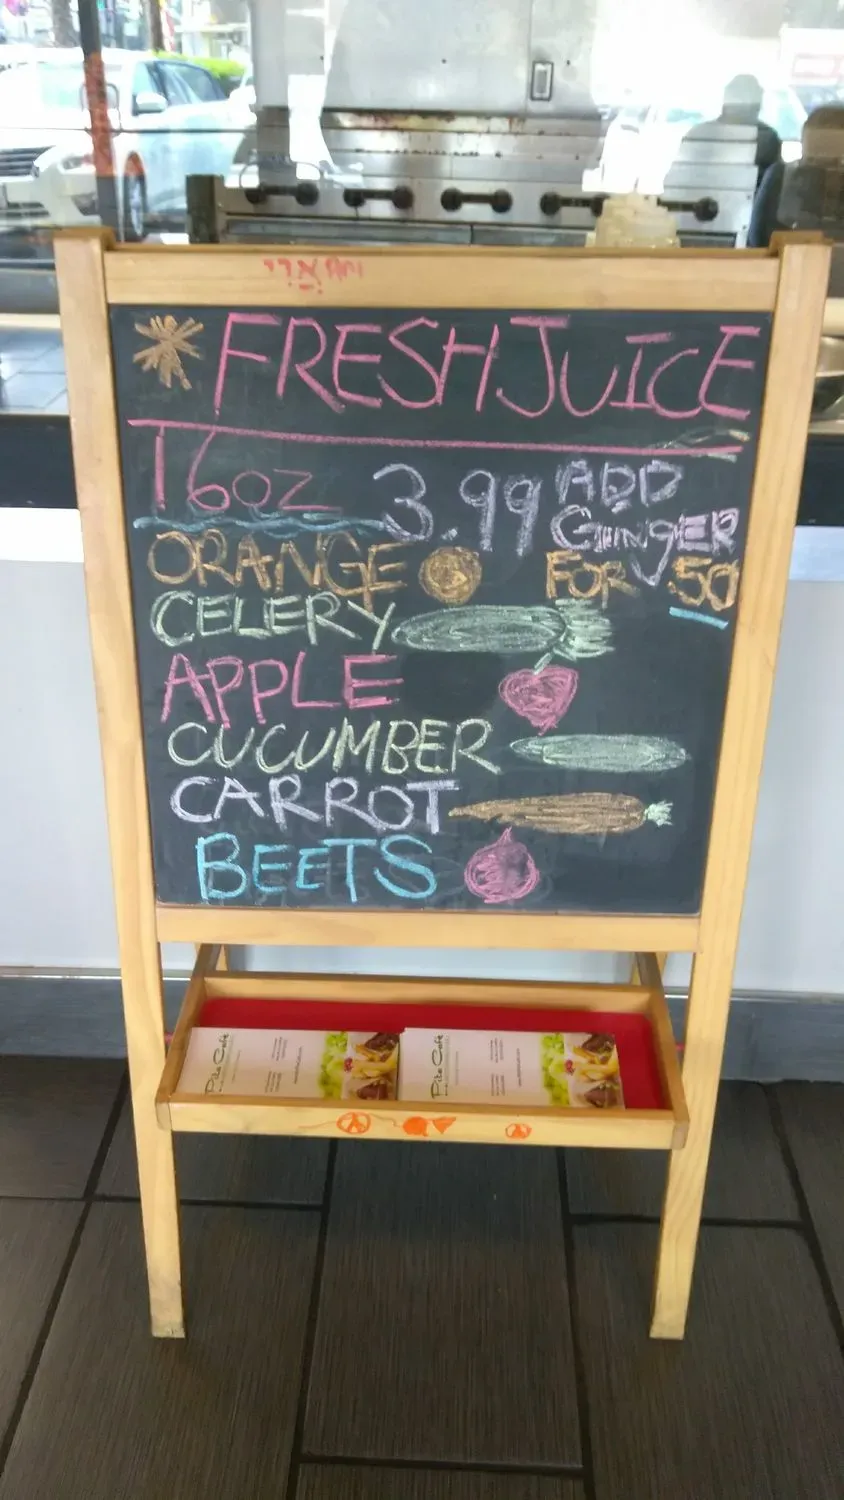 * FRESH JUICE
16oz 3.99 ADD GINGER FOR .50
ORANGE
CELERY
APPLE
CUCUMBER
CARROT
BEETS
Pita Café
Pita Café